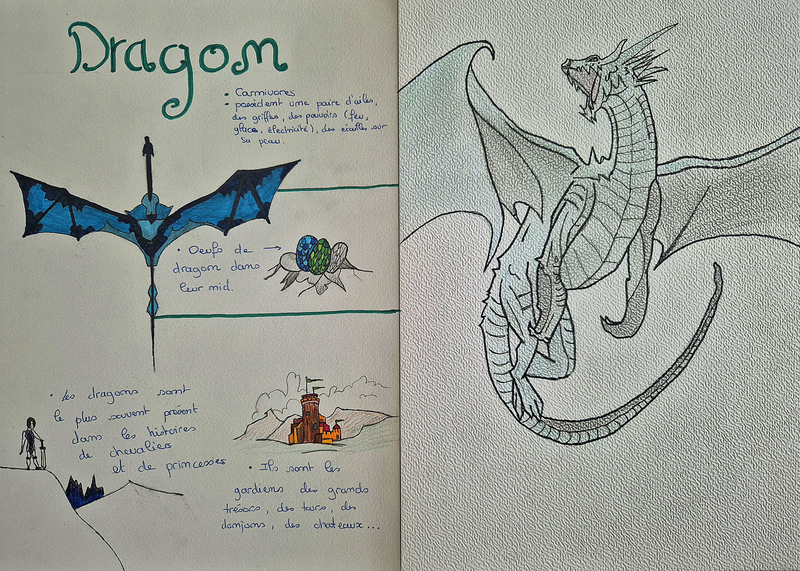 Dragon
• Carnivores
• possèdent une paire d'ailes,
des griffes, des pouvoirs (feu,
glace, électricité), des écailles sur
sa peau.
• Oeufs de →
dragon dans
leur nid.
• Les dragons sont
le plus souvent présent
dans les histoires
de chevaliers
et de princesses
• Ils sont les
gardiens des grands
trésors, des tours, des
donjons, des chateaux...